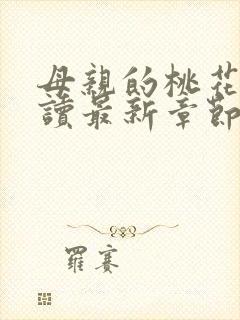 母親的桃花
讀最新章節
羅賽